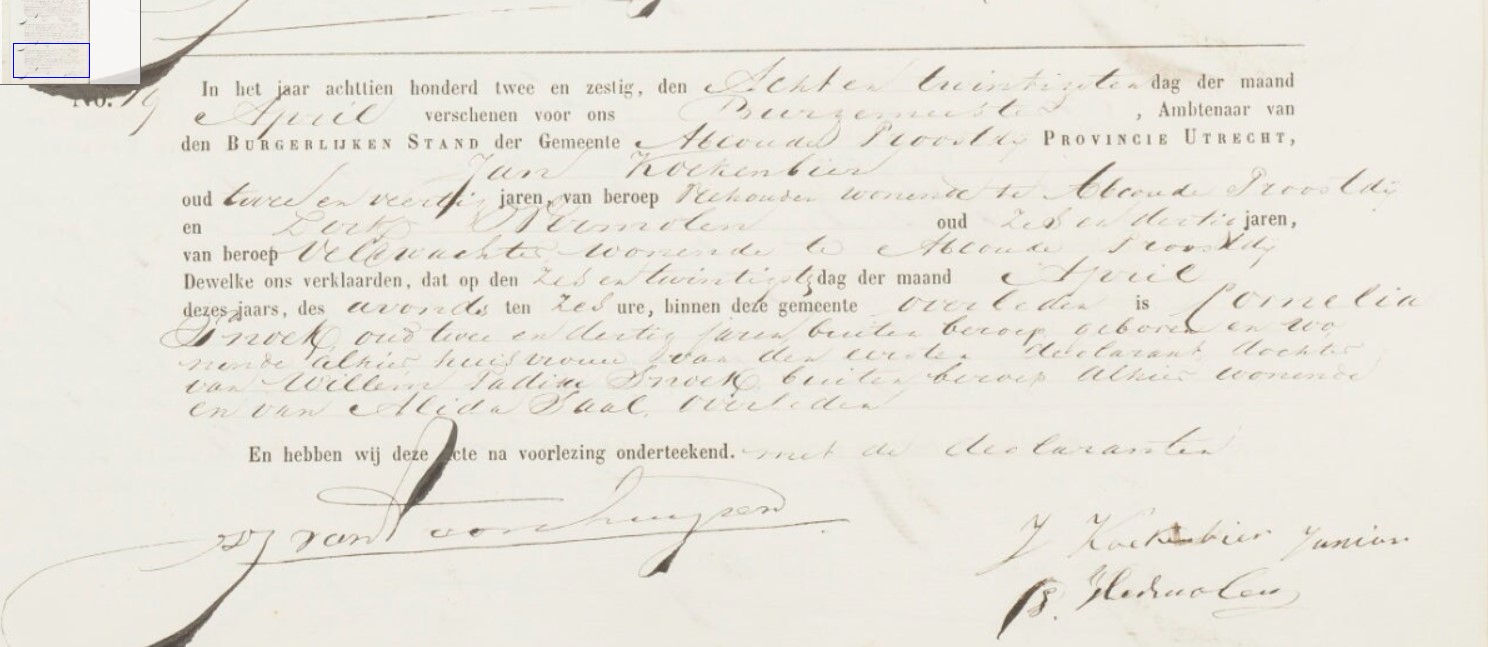 No. 19 In het jaar achttien honderd twee en zestig, den Acht en twintigsten dag der maand
April verschenen voor ons Burgemeester, Ambtenaar van
den BURGERLIJKEN STAND der Gemeente Abcoude Proostdij PROVINCIE UTRECHT,
Jan Koekenbier
oud twee en veertig jaren, van beroep Veehouder wonende te Abcoude Proostdij
en oud zes en dertig jaren,
van beroep Veldwachter wonende te Abcoude Proostdij
Dewelke ons verklaarden, dat op den zes en twintigste dag der maand April
dezes jaars, des avonds ten zes ure, binnen deze gemeente overleden is Cornelia
Snoek oud twee en dertig jaren buiten beroep geboren en wo
nende alhier huisvrouw van den eersten declarant, dochter
van Willem Snoek buiten beroep alhier wonende
en van Alida Saal, overleden
En hebben wij deze Acte na voorlezing onderteekend. met de declaranten
van Voorthuysen
J Koekenbier Junior